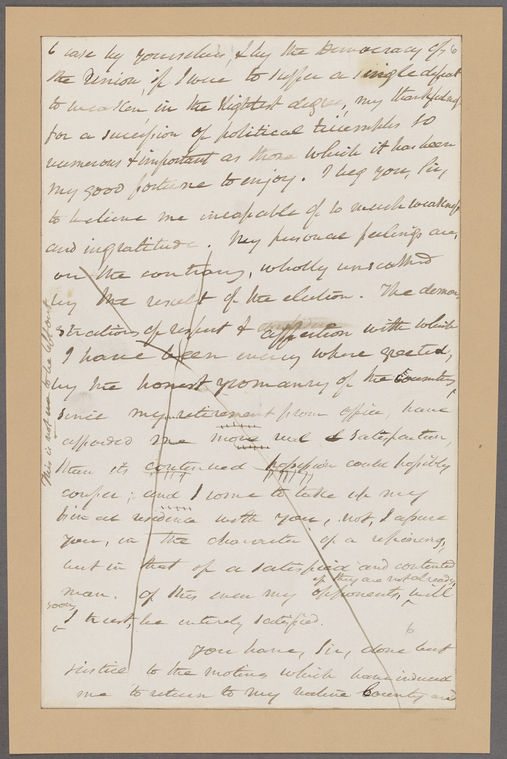 6 case by yourselves, & by the Democracy of 6
the Union, if I were to suffer a single defeat
to weaken in the slightest degree, my thankfulness
for a succession of political triumphs so
numerous & important as those which it has been
my good fortune to enjoy. I beg you, Sir,
to believe me incapable of so much weakness
and ingratitude. My personal feelings are,
on the contrary, wholly unscathed
by the result of the election. The demon-
strations of respect & affection with which
I have been every where greeted,
by the honest yeomanry of the Country,
since my retirement from office, have
afforded me more real satisfaction,
than its continued possession could possibly
confer; and I come to take up my
residence with you, not, I assure
you, in the character of a repining,
but in that of a satisfied and contented
if they are not already
man. Of this even my opponents, will
soon
I trust, be entirely satisfied.
6
You have, Sir, done but
justice to the motives which have induced
me to return to my native County and
This is not one to be left out